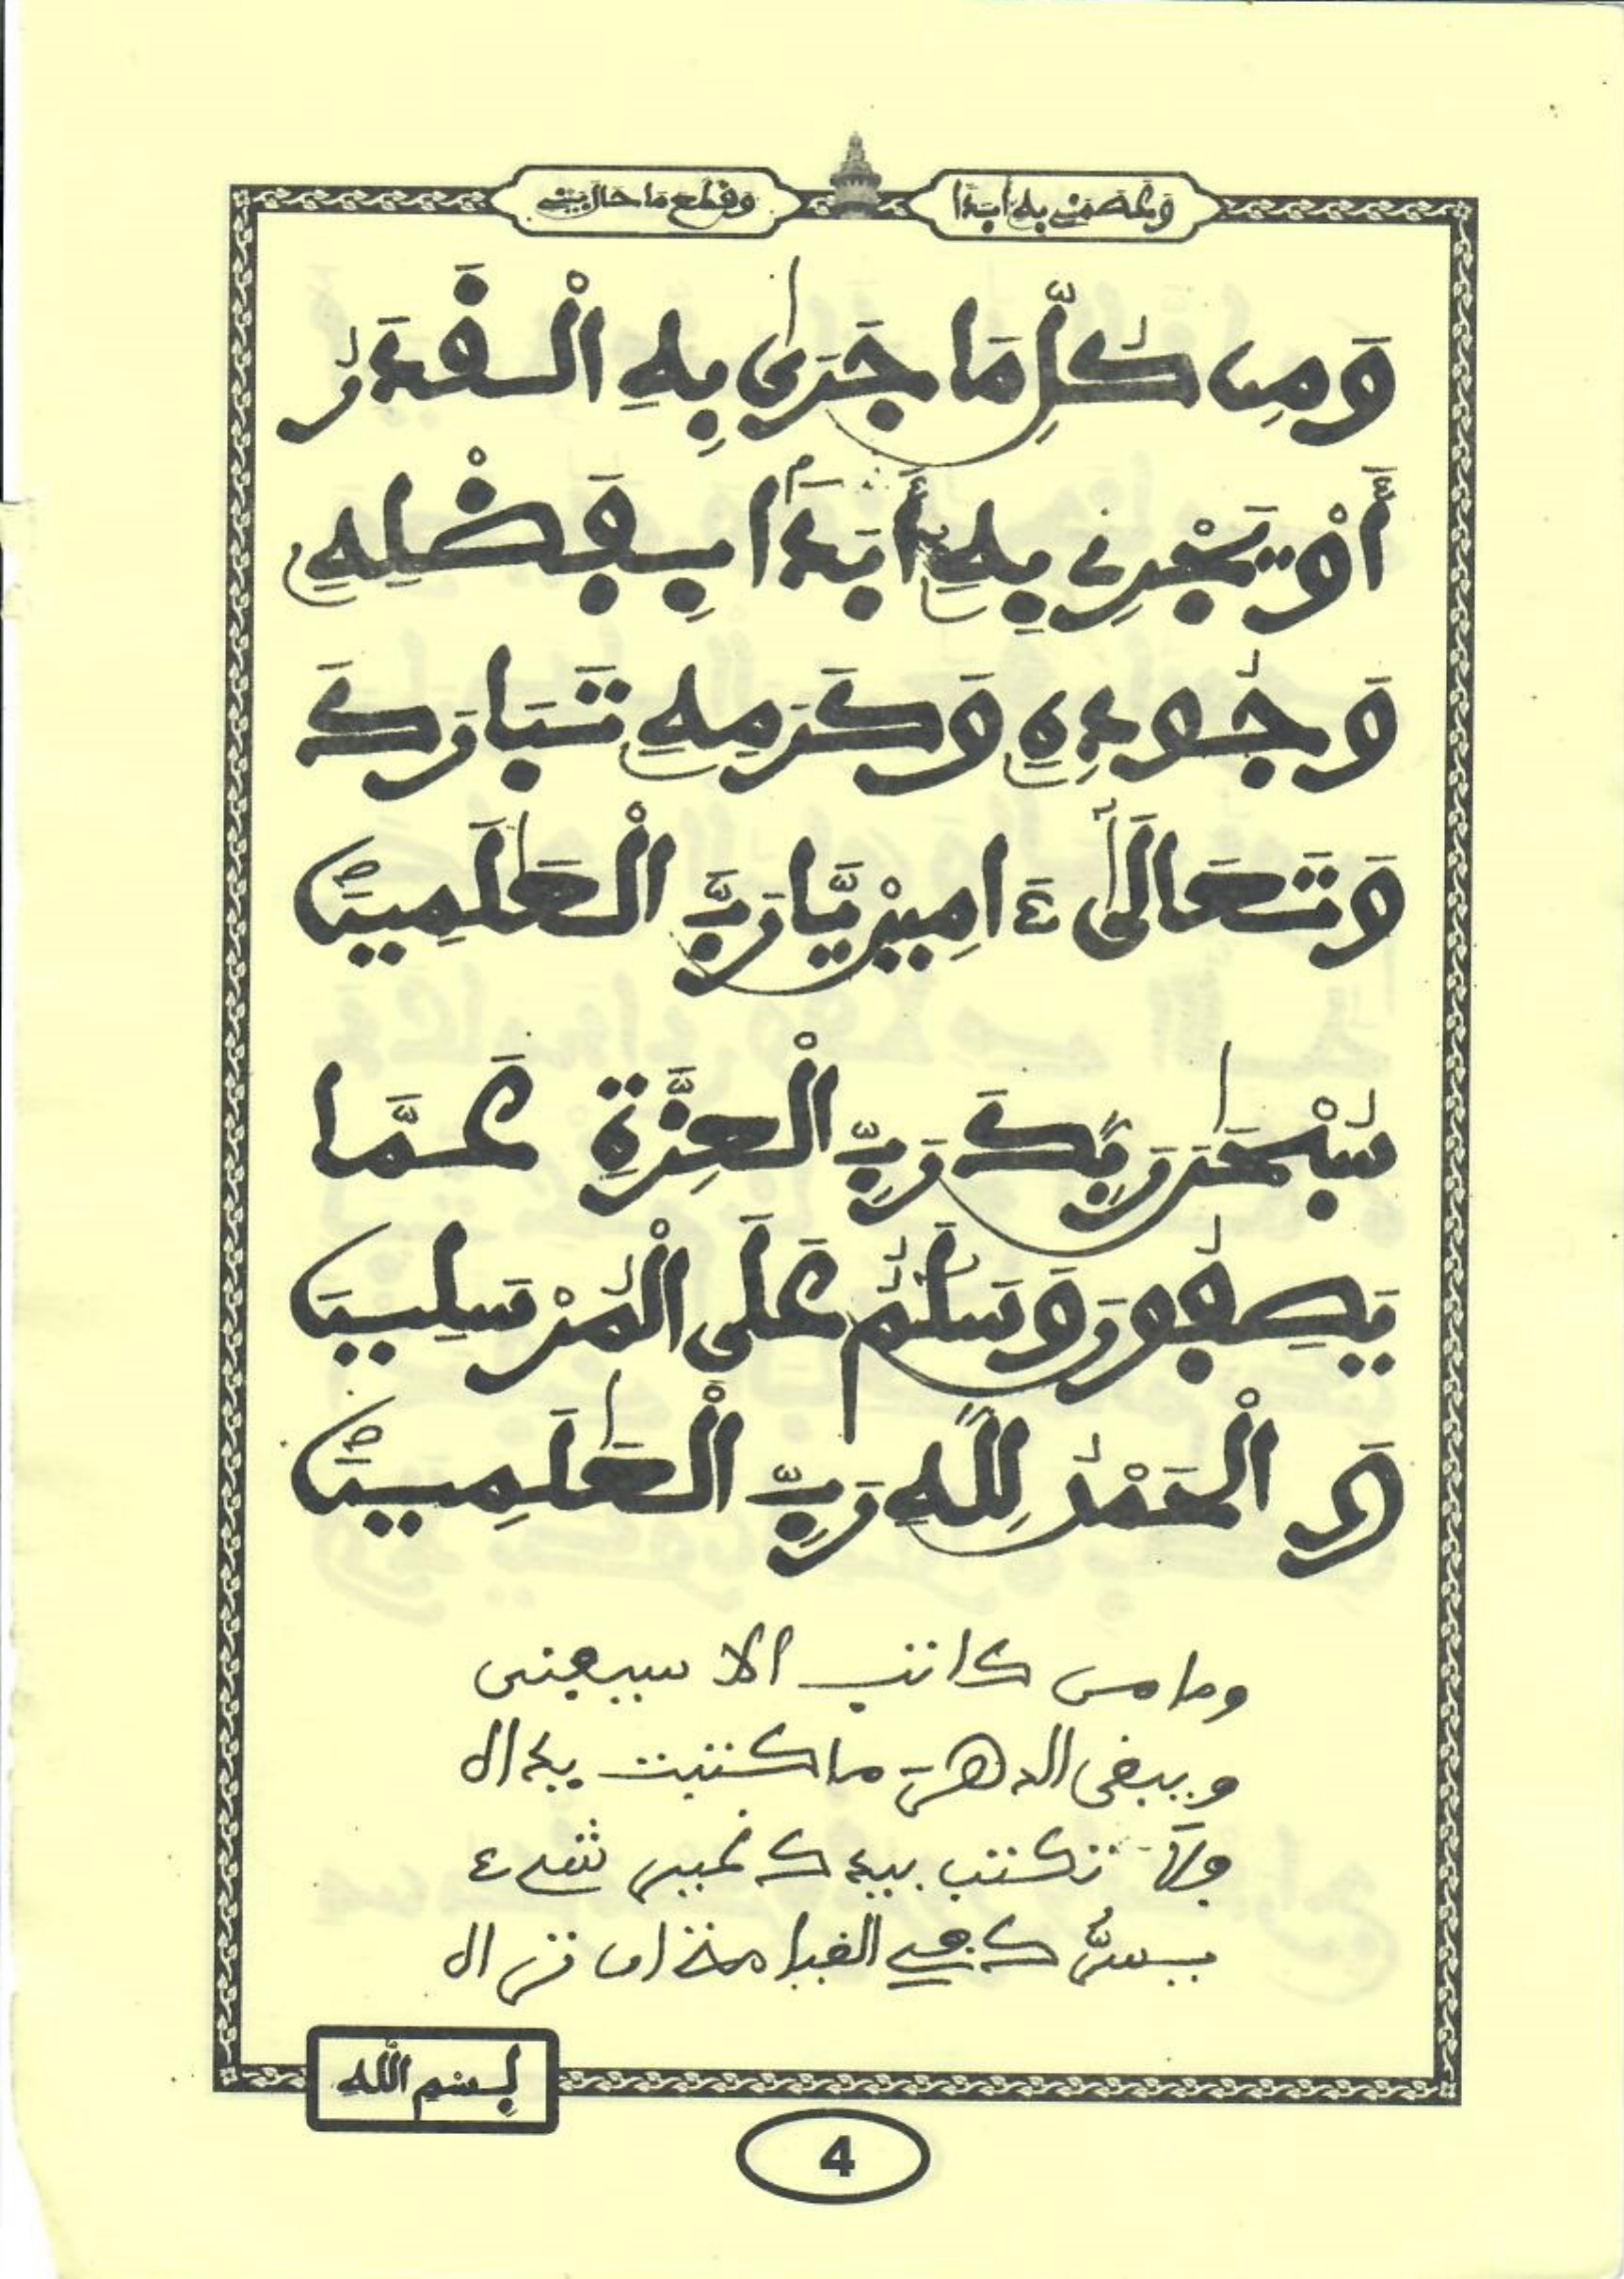 وَلِعِصْمَتِي بِهِ أَبَدًا
وَقَطَعَ مَا حَالَ بَيْنِي
وَمِن كُلِّ مَا جَرَىٰ بِهِ الْقَدَرُ
أَوْ يَجْرِي بِهِ أَبَدًا بِفَضْلِهِ
وَجُودِهِ وَكَرَمِهِ تَبَارَكَ
وَتَعَالَىٰ ءَامِينْ يَّا رَبَّ الْعَٰلَمِينَ
سُبْحَٰنَ رَبِّكَ رَبِّ الْعِزَّةِ عَمَّا
يَصِفُونَ وَسَلَٰمٌ عَلَى الْمُرْسَلِينَ
وَالْحَمْدُ لِلَّهِ رَبِّ الْعَٰلَمِينَ
وما من كاتب الا سيفنى
ويبقى الدهرَ ما كتبت يداه
فلَا تكتب بيدك غير شيء
يسرُّك في القيامة ان تراه
بِسْمِ اللَّه
4